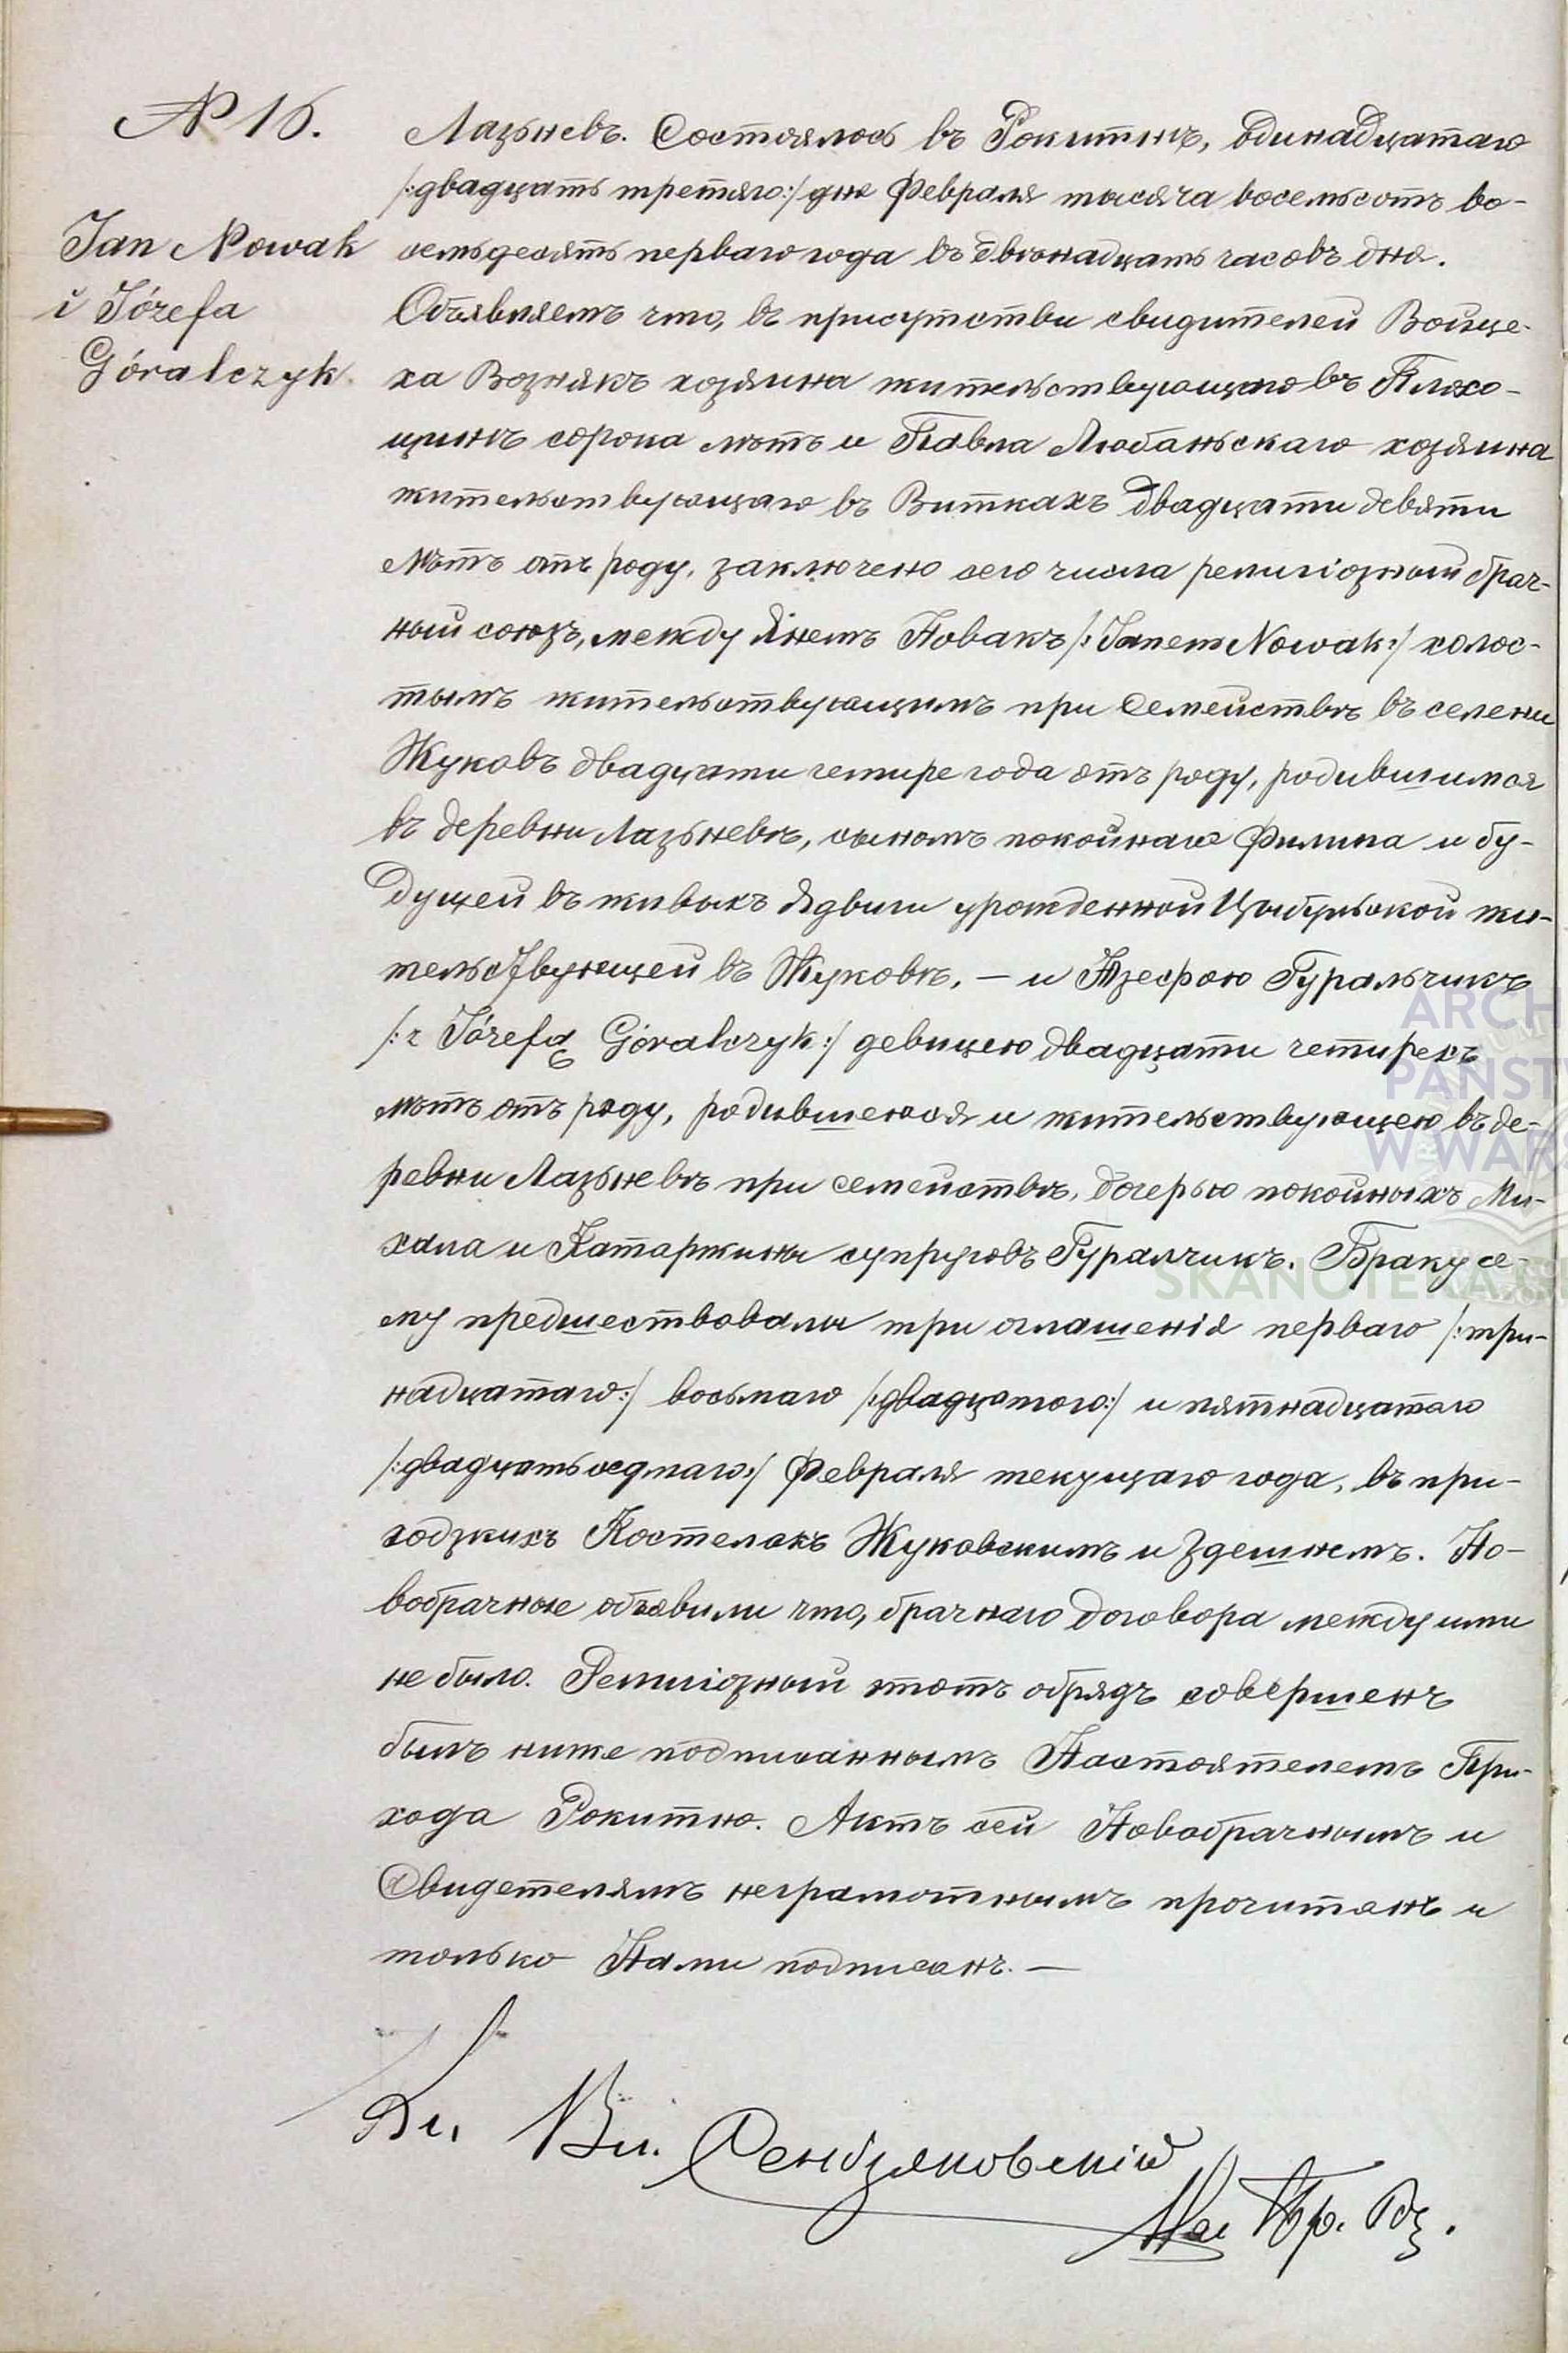 № 16.
Jan Nowak
i Józefa
Góralczyk.
Лазьневъ. Состоялось въ Рокитнѣ, одинадцатаго
/:двадцать третяго:/ дня Февраля тысяча восемьсотъ во-
семьдесятъ перваго года въ двѣнадцать часовъ дня.
Объявляемъ что, въ присутстви свидителей Войце-
ха Вознякъ хозяина жительствующаго въ Плохо-
цинѣ сорока лѣтъ и Павла Любаньскаго хозяина
жительствующаго въ Виткахъ двадцати девяти
лѣтъ отъ роду, заключено сего числа религіозный брач-
ный союзъ, между Янемъ Новакъ /:Janem Nowak:/ холос-
тымъ жительствующимъ при семействѣ въ селени
Жуковъ двадцати четыре года отъ роду, родившимся
въ деревни Лазьневѣ, сыномъ покойнаго Филипа и бу-
дущей въ живыхъ Ядвиги урожденной Цыбульской жи-
тельствующей въ Жуковѣ, — и Юзефою Гуральчикъ
/:z Józefą Góralczyk:/ девицею двадцати четырехъ
лѣтъ отъ роду, родившеюся и жительствующею въ де-
ревни Лазьневѣ при семействѣ, дочерью покойныхъ Ми-
хала и Катаржины супруговъ Гуралчикъ. Браку се-
му предшествовали три оглашенія перваго /:три-
надцатаго:/ восьмаго /:двадцатого:/ и пятнадцатаго
/:двадцать седмаго:/ Февраля текущаго года, въ при-
ходзкихъ Костелахъ Жуковскимъ и Здешнемъ. Но-
вобрачные объявили что, брачнаго договора между ими
не было. Религіозный этотъ обрядъ совершенъ
былъ ниже подписаннымъ Настоятелемъ При-
хода Рокитно. Актъ сей Новобрачнымъ и
Свидетелямъ неграмотнымъ прочитанъ и
только Нами подписанъ. —
Кс. Вл. Сендзяковскій
Нас. Пр. Ро.
ARCH
PAŃST
W WAR
SKANOTEKA